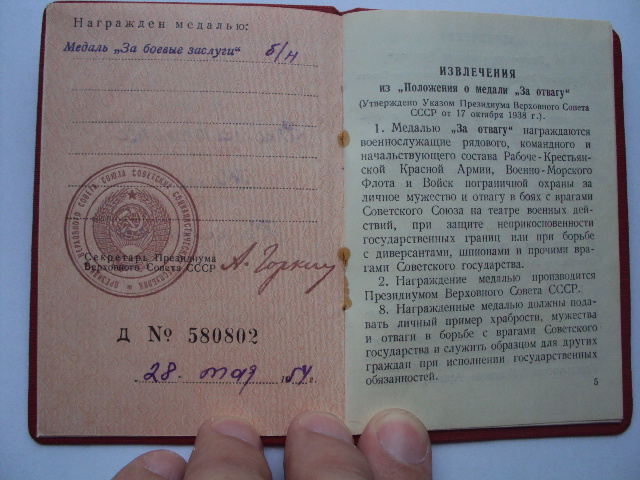 Награжден медалью:
Медаль „За боевые заслуги“ б/н
Секретарь Президиума
Верховного Совета СССР А. Горкин
Д № 580802
28 мая 1954 г.
ИЗВЛЕЧЕНИЯ
из „Положения о медали „За отвагу“
(Утверждено Указом Президиума Верховного Совета
СССР от 17 октября 1938 г.).
1. Медалью „За отвагу“ награждаются
военнослужащие рядового, командного и
начальствующего состава Рабоче-Крестьян-
ской Красной Армии, Военно-Морского
Флота и Войск пограничной охраны за
личное мужество и отвагу в боях с врагами
Советского Союза на театре военных дей-
ствий, при защите неприкосновенности
государственных границ или при борьбе
с диверсантами, шпионами и прочими вра-
гами Советского государства.
2. Награждение медалью производится
Президиумом Верховного Совета СССР.
8. Награжденные медалью должны пода-
вать личный пример храбрости, мужества
и отваги в борьбе с врагами Советского
государства и служить образцом для других
граждан при исполнении государственных
обязанностей.
5